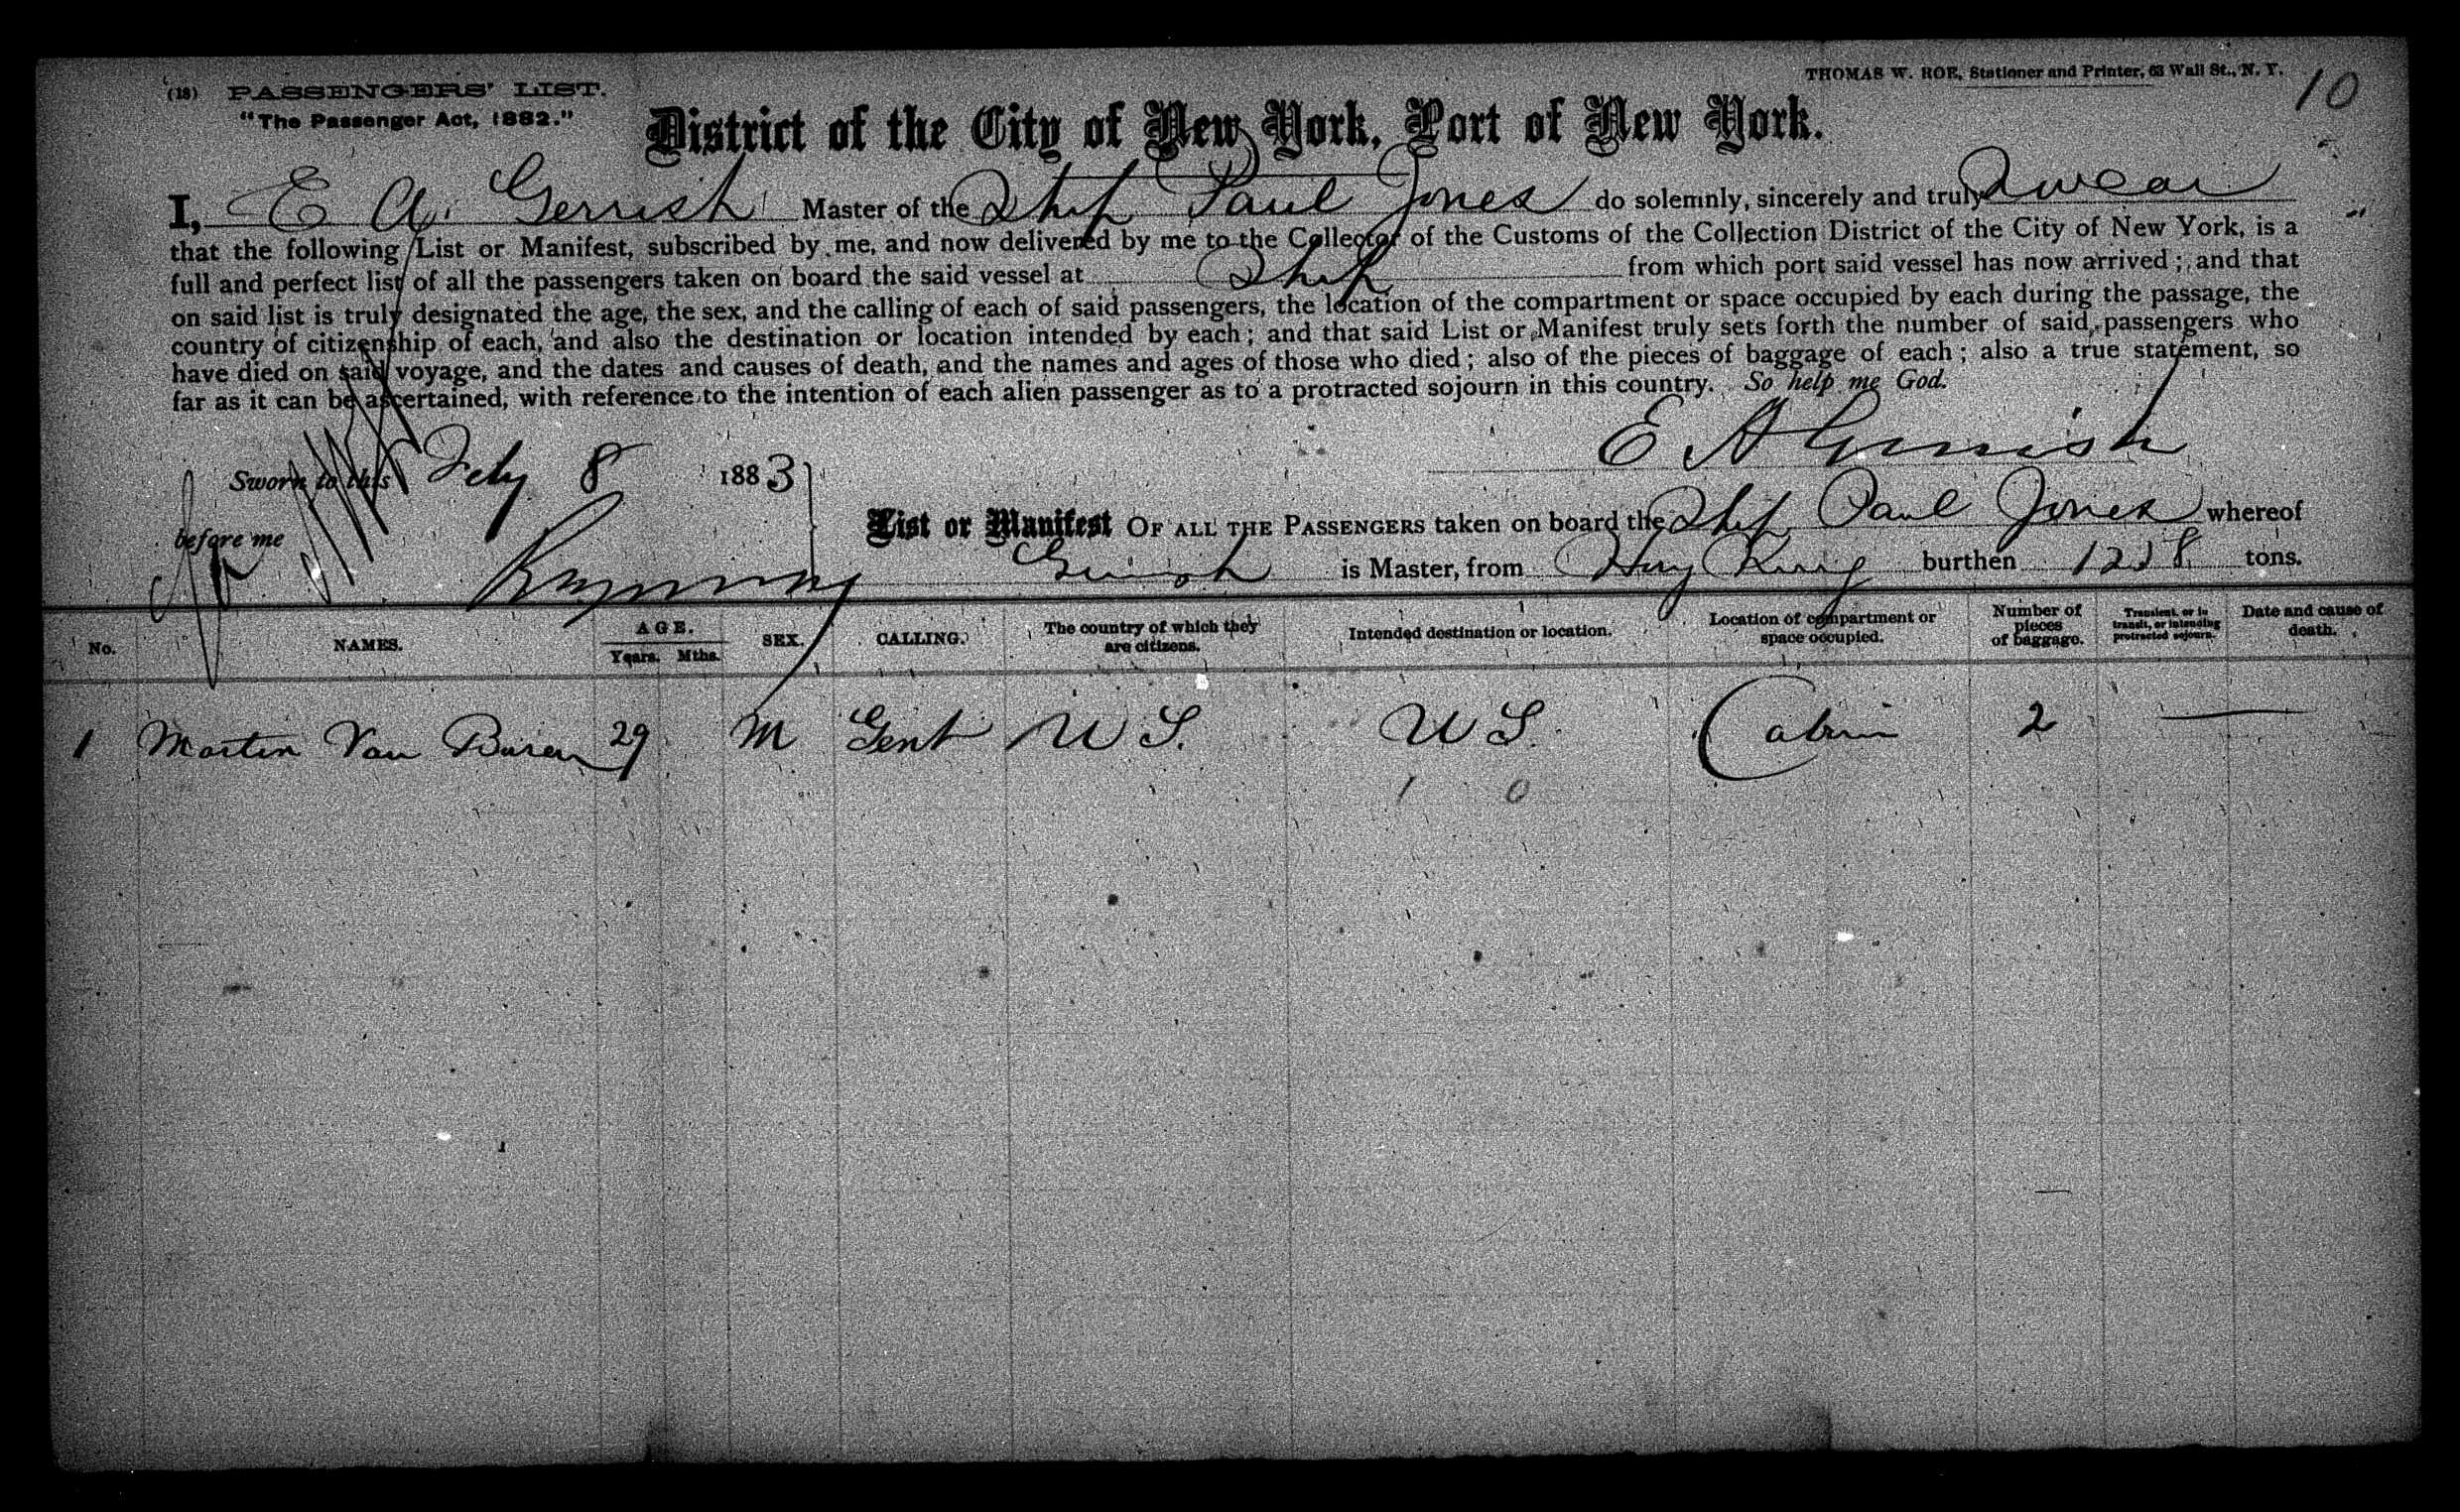 (18) PASSENGERS' LIST.
"The Passenger Act, 1882."
THOMAS W. ROE, Stationer and Printer, 63 Wall St., N. Y.
10
District of the City of New York, Port of New York.
I, E A. Gerrish Master of the Ship Paul Jones do solemnly, sincerely and truly Swear
that the following List or Manifest, subscribed by me, and now delivered by me to the Collector of the Customs of the Collection District of the City of New York, is a
full and perfect list of all the passengers taken on board the said vessel at Ship from which port said vessel has now arrived; and that
on said list is truly designated the age, the sex, and the calling of each of said passengers, the location of the compartment or space occupied by each during the passage, the
country of citizenship of each, and also the destination or location intended by each; and that said List or Manifest truly sets forth the number of said passengers who
have died on said voyage, and the dates and causes of death, and the names and ages of those who died; also of the pieces of baggage of each; also a true statement, so
far as it can be ascertained, with reference to the intention of each alien passenger as to a protracted sojourn in this country. So help me God.
E A Gerrish
Sworn to this Feby 8 1883
before me
List or Manifest OF ALL THE PASSENGERS taken on board the Ship Paul Jones whereof
Gerrish is Master, from Hong Kong burthen 1258 tons.
No. NAMES. AGE. Years. Mths. SEX. CALLING. The country of which they are citizens. Intended destination or location. Location of compartment or space occupied. Number of pieces of baggage. Transient, or in transit, or intending protracted sojourn. Date and cause of death.
1 Martin Van Buren 29 M Gent U S. U S. Cabin 2
1 0